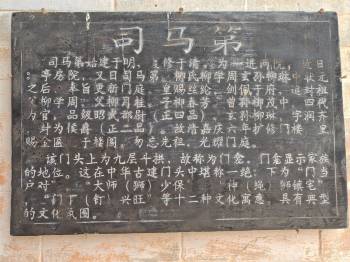 司马第
司马第始建于明，复修于清。为一进两院，
亭房院，又曰司马第。柳氏柳学周玄孙柳琳
之后，奉旨更新门庭，皇赐丝纶，剑佩于府，中道封四代
柳学周 父柳月桂，子柳春芳，曾孙柳茂中，四代
为官，品级昭武都尉（正四品） 玄孙柳琳，宇润齐
封为侯爵（正二品）。故清嘉庆六年扩修门楼
赐金匾 于楼阁，勿忘先祖，光耀门庭。
该门头上为九层斗拱，故称为门念，门念显示家族
的地位。这在中华古建门头中堪称一绝：下为“门当
户对” “大师（狮）少保 “神（绳）狮镇宅”，
“门丁（钉）兴旺”等十二种文化寓意，具有典型
的文化氛围。